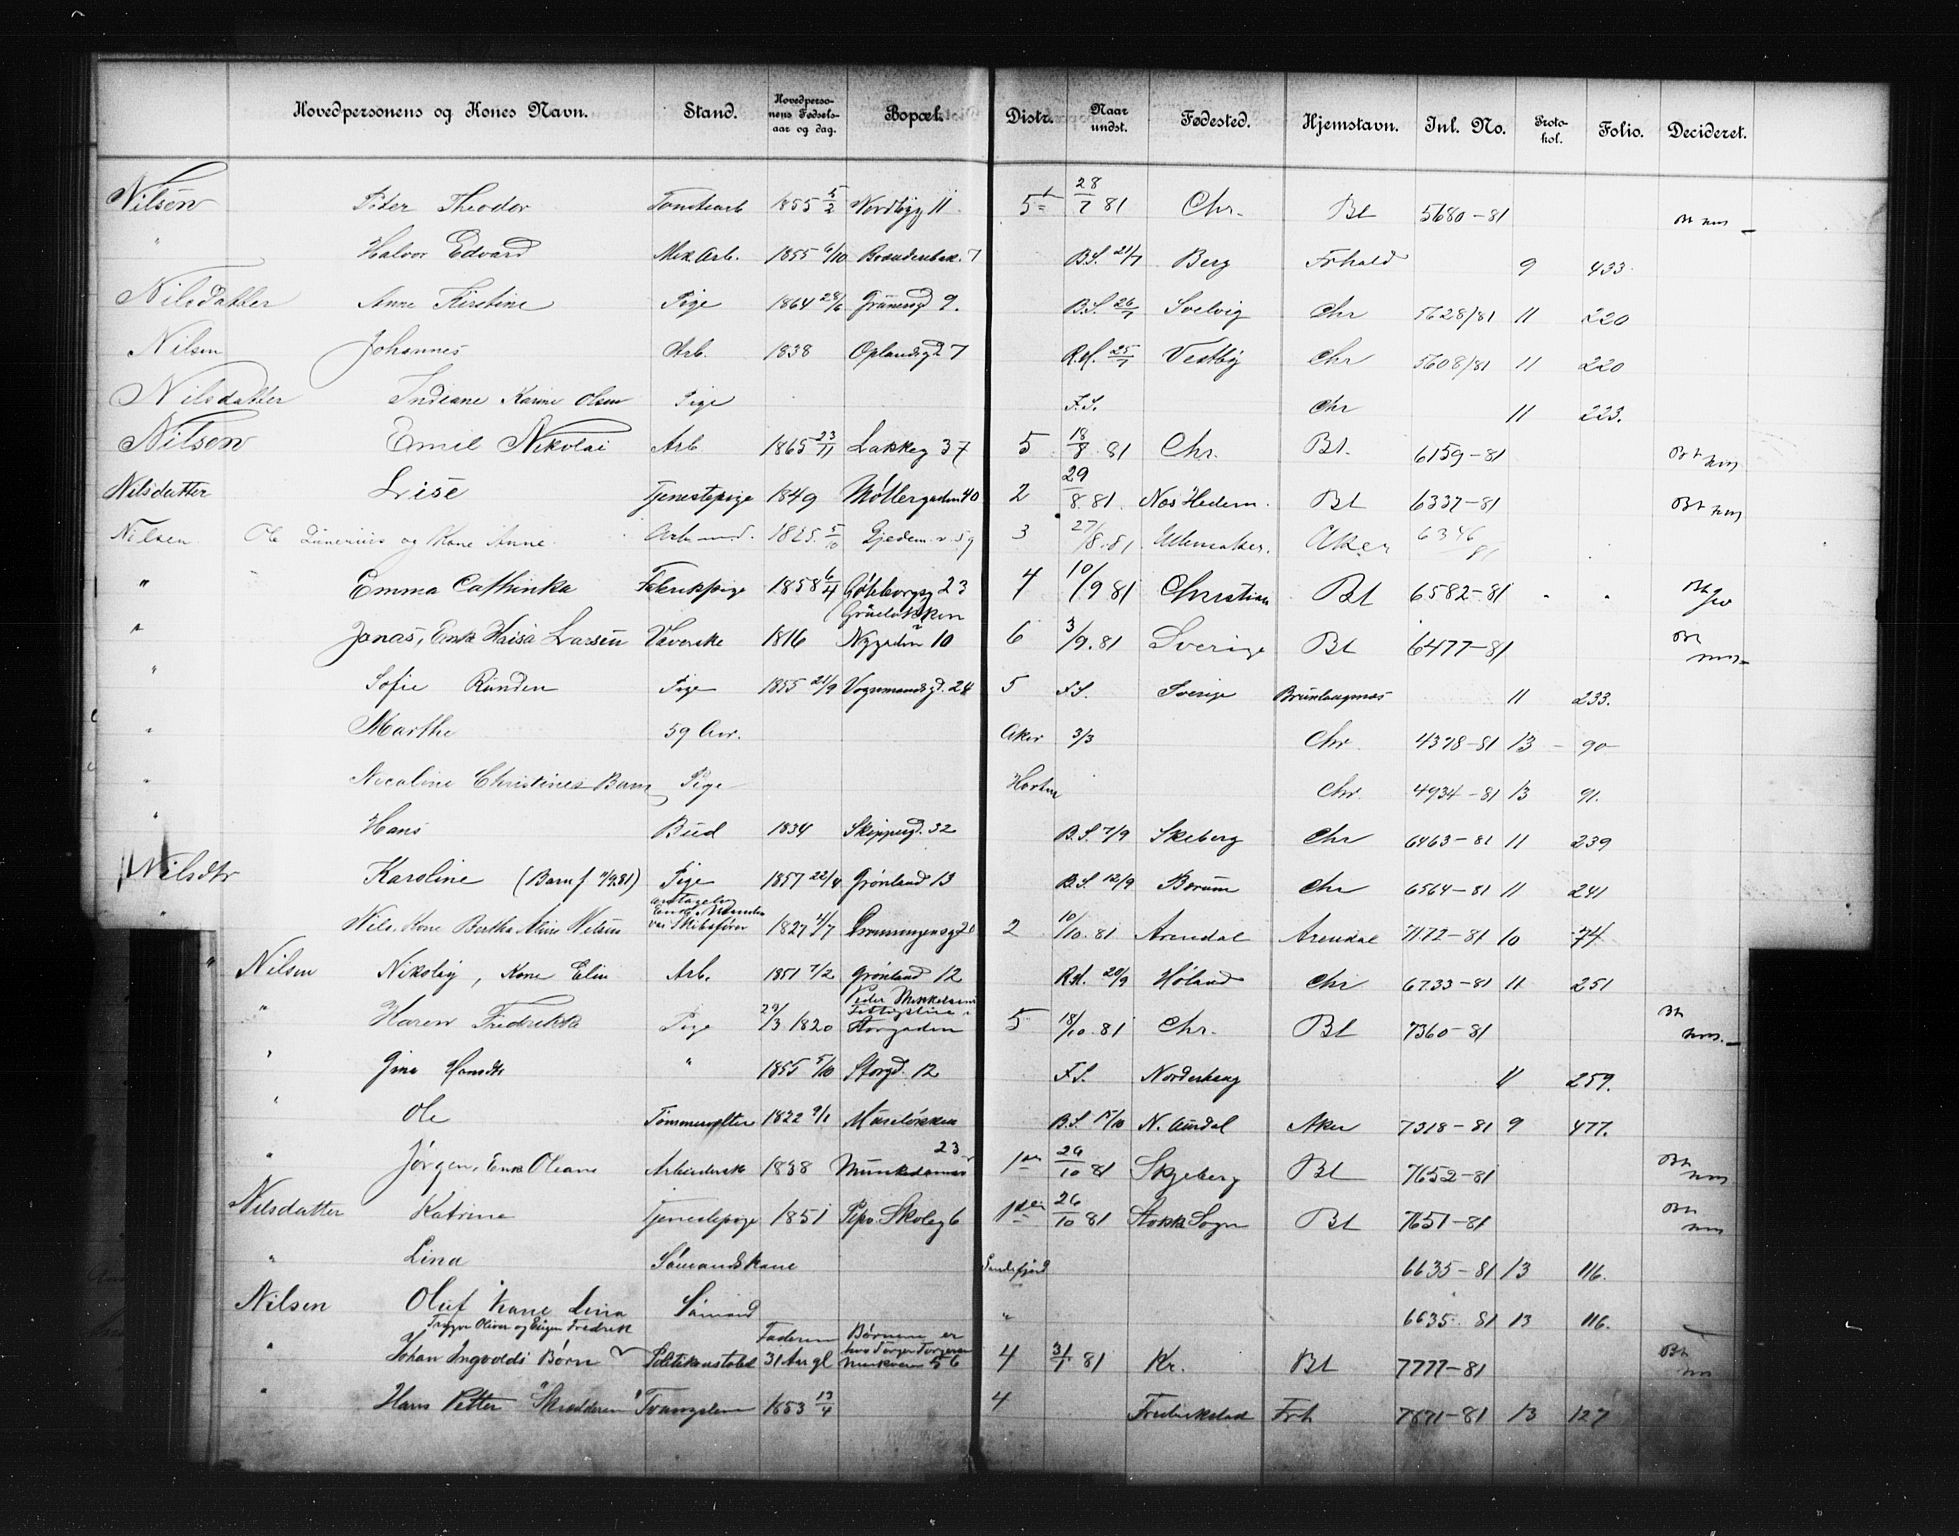 Hovedpersonens og Kones Navn. Stand. Hovedpersonens Fødselsaar og dag. Bopæl. Distr. Naar undst. Fødested. Hjemstavn. Inl. No. Protokol. Folio. Decideret.
Nilsen Peter Theodor 1855 5/2 Nordbyg 11 5 28/7 81 Chr. Bt 5680-81 Bt
" Halvor Edvard Mek Arb. 1855 6/10 7 B.S. 21/7 Berg Frhald 9 433
Nilsdatter Anne Kirstine Pige 1864 28/6 Grünersgd 9. B.S. 26/7 Svelvig Chr 5628/81 11 220
Nilsen Johannes Arb. 1838 Oplandsgd 7 R.H. 25/7 Vestby Chr 5608/81 11 220
Nilsdatter Indiane Karine Olsen Pige F.S. Chr 11 223.
Nilsen Emil Nikolai Arb 1865 23/11 Lakkeg 37 5 18/8 81 Chr. Bt. 6159-81 Bt
Nilsdatter Lise Tjenestepige 1849 Møllergaden 40 2 29/8 81. Nes Hedem. Bt 6337-81 Bt
Nilsen Ole og Kone Anne Arbmd. 1825 5/10 3 27/8 81 Ullensaker. Aker 6346/81
" Emma Cathinka Fabrikpige 1858 6/4 Gøteborgsg 23 4 10/9 81 Christian Bt 6582-81 " " Bt
Grüneløkken
" Jonas, Enke Kaisa Larsen Væverske 1816 Nygaden 10 6 3/9.81 Sverige Bt 6477-81 Bt
" Sofie Runden Pige 1855 21/9 Vognmandsgd. 24 5 F.S. Sverige Brunlangnæs 11 233.
" Marthe 59 Aar. Aker 3/3 Chr. 4378-81 13 - 90-
" Nicoline Christines Barn Pige Horten Chr. 4934-81 13 91.
" Hans Bud 1834 Skipperg. 32 B.S. 7/9 Skeberg Chr 6463-81 11 239
Nilsdtr Karoline (Barn f 11/9 81) Pige 1857 22/4 Grønland 13 B.S. 12/9 Bærum Chr 6564-81 11 241
antagelig
" Nils, Kone Bertha Aline Nilsen Enke, Manden var Skibsfører 1827 4/7 Dronningensg 20 2 10/10.81 Arendal Arendal 7172-81 10 74
" Nilsen Nikolai, Kone Elin Arb. 1851 7/2 Grønland 12 R.H. 20/9 Høland Chr 6733-81 11 251
Peder Mikkelsens
" Karen Fredrikke Pige 29/3 1820 Storgaden 5 18/10.81 Chr. Bt 7360-81 Bt
" Gina Hansdtr " 1855 5/10 Storgd. 12 F.S. Norderhaug 11 259.
" Ole 1822 9/1 Munkeløkken B.S. 15/10 N. Aurdal Aker 7318-81 9 477.
23
" Jørgen, Enke Oleane Arbeiderske 1838 Munkedamsv 1ste 26/10 81 Skjeberg Bt 7652-81 Bt
Nilsdatter Katrine Tjenestepige 1851 Pipv. Skoleg 6 1ste 26/10 81 Stokke Sogn Bt 7651-81 Bt
" Lina Sømandskone Sandefjord 6635-81 13 116.
Nilsen Oluf Kone Lina Sømand " 6635-81 13 116.
Trygve Oliver og Eugen Fredrik Faderen Børnene er
" Johan Ingvolds Børn Politikonstabel 31 Aar gl hos Torger Torgersen Munkveien 56 4 31/1 81 Kr. Bt 7777-81 Bt
" Hans Petter "Skredderen" Tvangslem 1853 13/4 4 Frederikstad Frh 7871-81 13 127